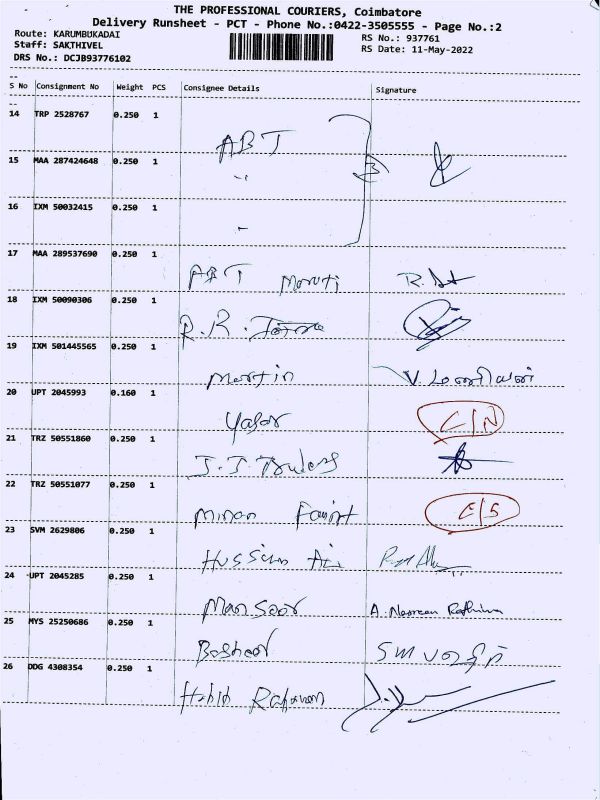 THE PROFESSIONAL COURIERS, Coimbatore
Delivery Runsheet - PCT - Phone No.:0422-3505555 - Page No.:2
Route: KARUMBUKADAI
RS No.: 937761
Staff: SAKTHIVEL
RS Date: 11-May-2022
DRS No.: DCJB93776102
S No Consignment No Weight PCS Consignee Details Signature
14 TRP 2528767 0.250 1 ABT
15 MAA 287424648 0.250 1
16 IXM 50032415 0.250 1
17 MAA 289537690 0.250 1 ABT Maruti
18 IXM 50090306 0.250 1 R.R.
19 IXM 501445565 0.250 1 Martin V. மணிவேன்
20 UPT 2045993 0.160 1 Yasar C/N
21 TRZ 50551860 0.250 1 J.J.
22 TRZ 50551077 0.250 1 C/S
23 SVM 2629806 0.250 1
24 UPT 2045285 0.250 1 Mansoor A.
25 MYS 25250686 0.250 1 Basheer
26 DDG 4308354 0.250 1 Habib